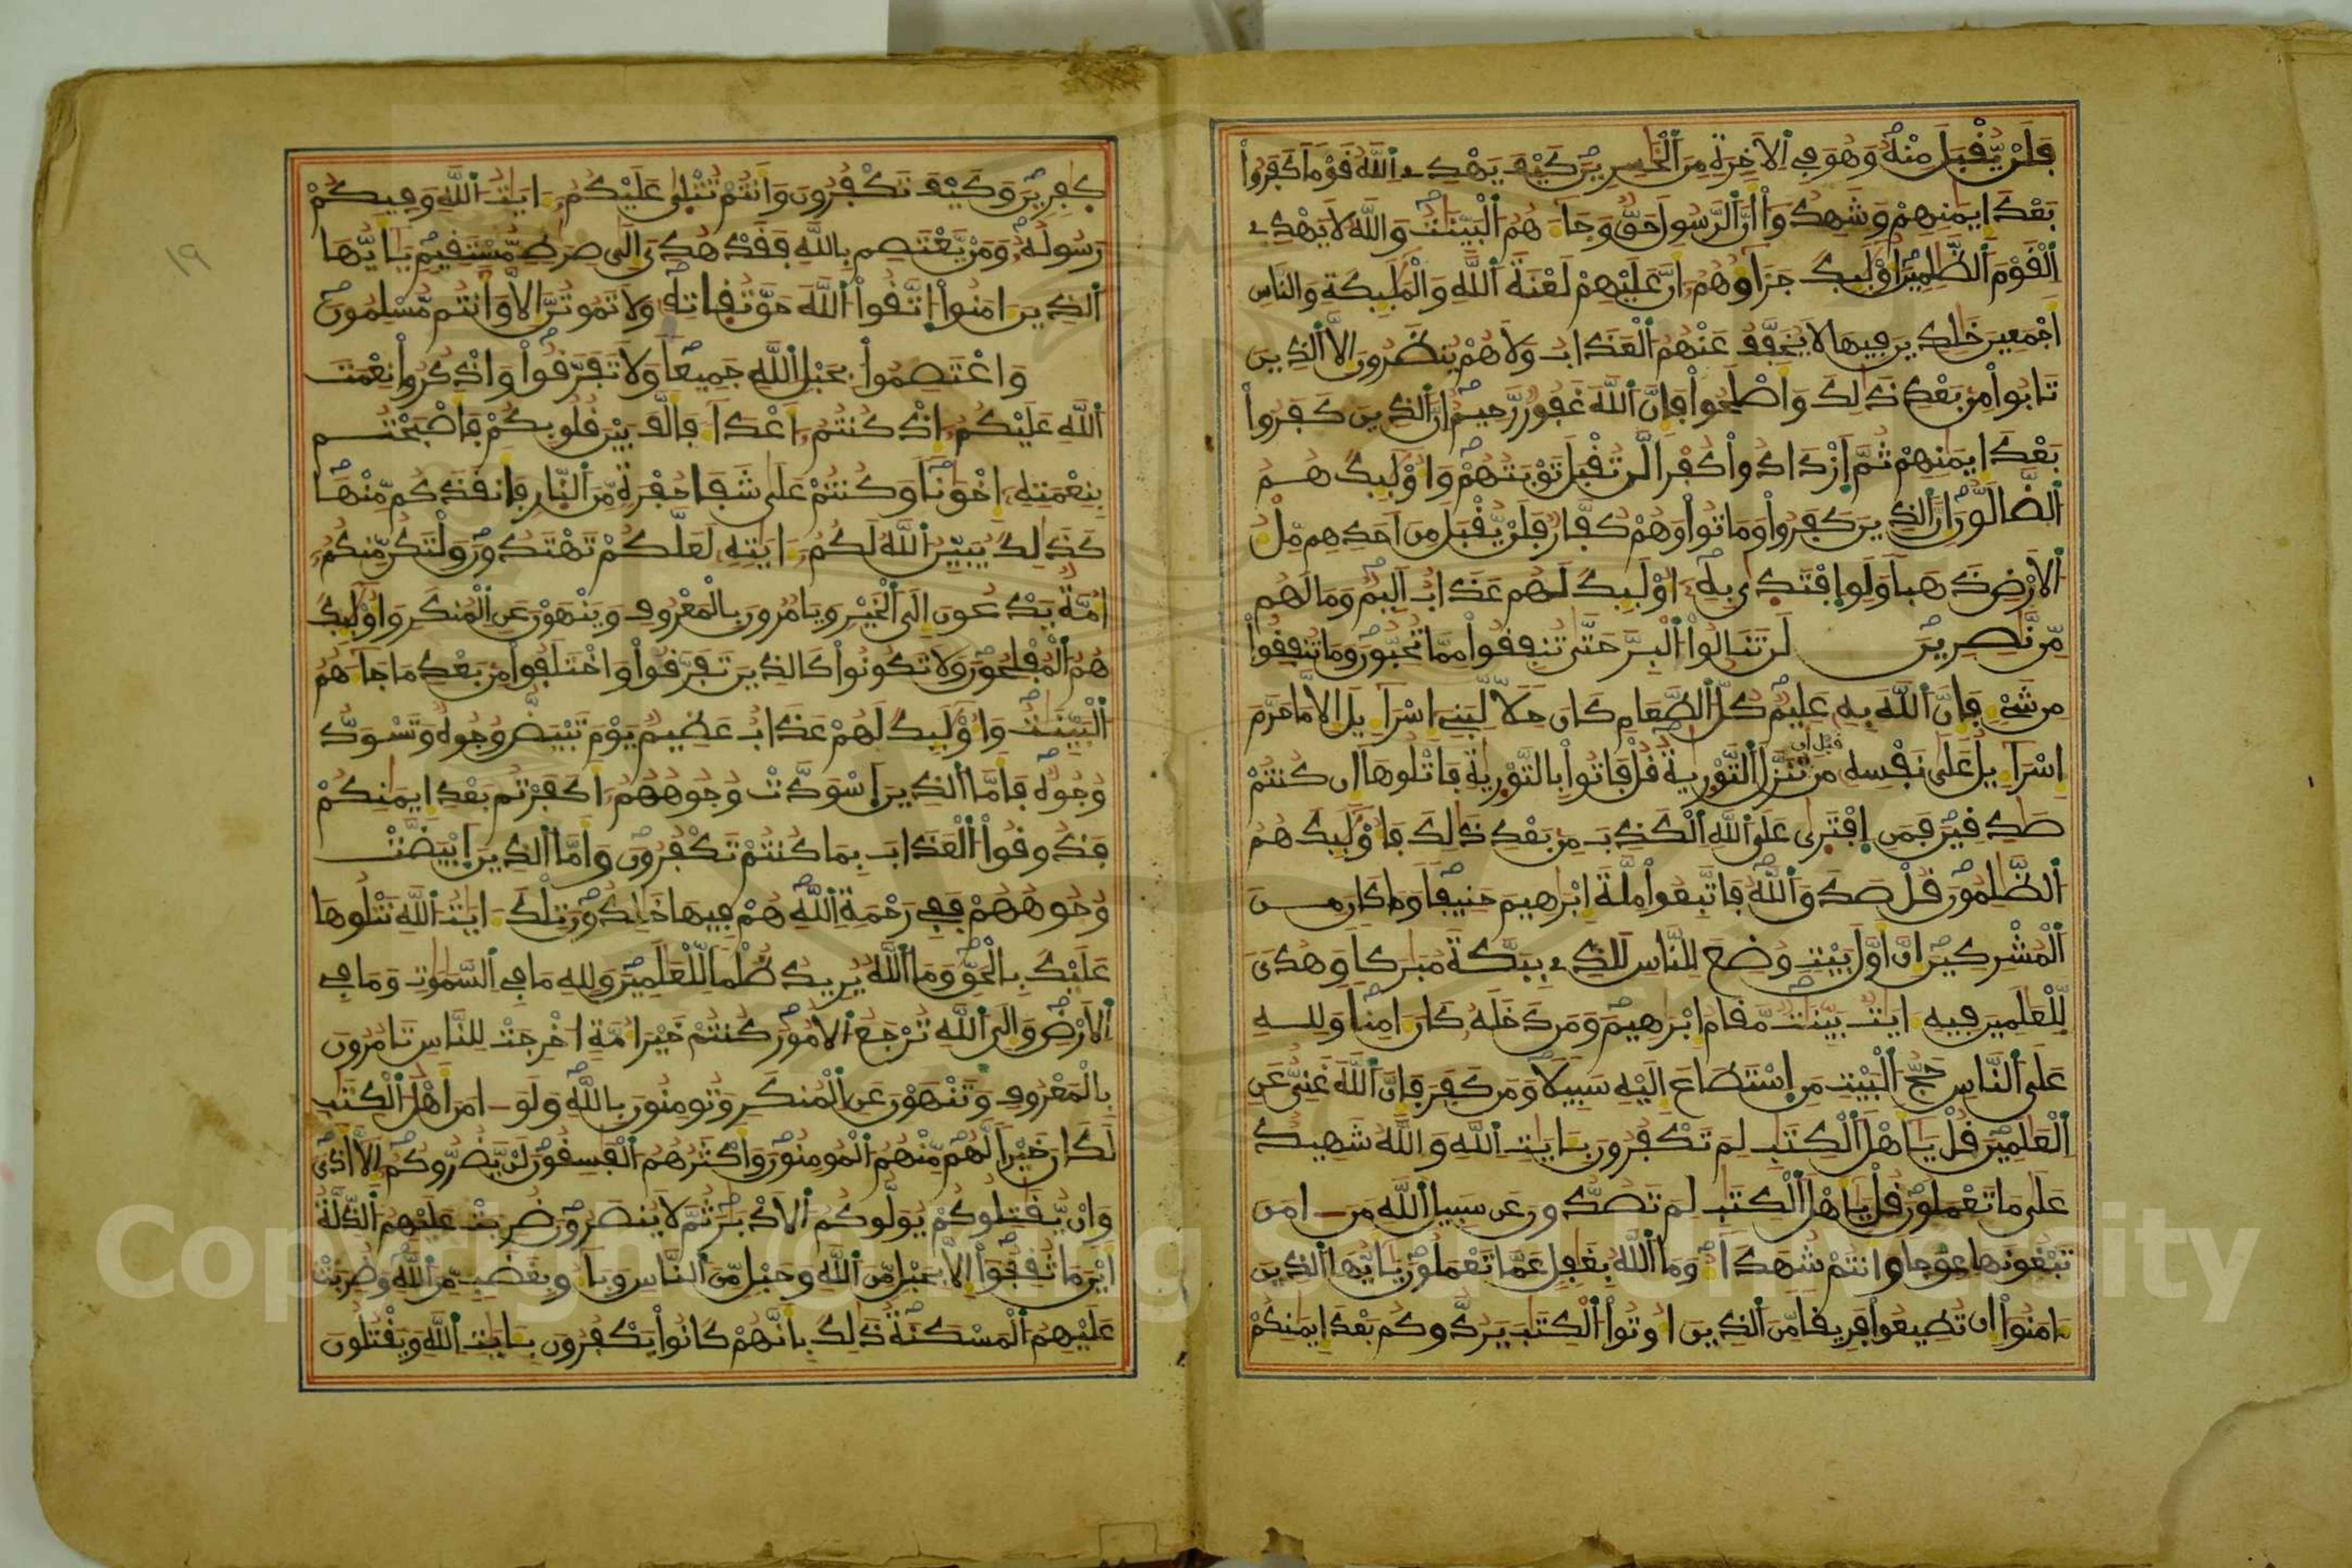 فَلَنْ يُّقْبَلَ مِنْهُ وَهُوَ فِي اِلَاخِرَةِ مِنَ اَلْخَٰسِرِينَ كَيْفَ يَهْدِے اِللَّهُ قَوْماً كَفَرُواْ
بَعْدَ إِيمَٰنِهِمْ وَشَهِدُواْ أَنَّ اَلرَّسُولَ حَقٌّ وَجَآءَهُمُ اَلْبَيِّنَٰتُ وَاللَّهُ لَا يَهْدِے
اِلْقَوْمَ اَلظَّٰلِمِينَ أُوْلَٰئِكَ جَزَآؤُهُمُ أَنَّ عَلَيْهِمْ لَعْنَةَ اَللَّهِ وَالْمَلَٰئِكَةِ وَالنَّاسِ
أَجْمَعِينَ خَٰلِدِينَ فِيهَا لَا يُخَفَّفُ عَنْهُمُ اَلْعَذَابُ وَلَا هُمْ يُنظَرُونَ إِلَّا اَلَّذِينَ
تَابُواْ مِنْ بَعْدِ ذَٰلِكَ وَأَصْلَحُواْ فَإِنَّ اَللَّهَ غَفُورٌ رَّحِيمٌ إِنَّ اَلَّذِينَ كَفَرُواْ
بَعْدَ إِيمَٰنِهِمْ ثُمَّ اَزْدَادُواْ كُفْراً لَّن تُقْبَلَ تَوْبَتُهُمْ وَأُوْلَٰئِكَ هُمُ
اُلضَّآلُّونَ إِنَّ اَلَّذِينَ كَفَرُواْ وَمَاتُواْ وَهُمْ كُفَّارٌ فَلَنْ يُّقْبَلَ مِنَ اَحَدِهِم مِّلْءُ
اُلَارْضِ ذَهَباً وَلَوِ اِفْتَدَىٰ بِهِ أُوْلَٰئِكَ لَهُمْ عَذَابٌ اَلِيمٌ وَمَا لَهُم
مِّن نَّٰصِرِينَ لَن تَنَالُواْ اَلْبِرَّ حَتَّىٰ تُنفِقُواْ مِمَّا تُحِبُّونَ وَمَا تُنفِقُواْ
مِن شَيْءٍ فَإِنَّ اَللَّهَ بِهِ عَلِيمٌ كُلُّ اَلطَّعَامِ كَانَ حِلّاً لِّبَنِي إِسْرَآءِيلَ إِلَّا مَا حَرَّمَ
إِسْرَآءِيلُ عَلَىٰ نَفْسِهِ مِن قَبْلِ أَن تُنَزَّلَ اَلتَّوْرَيٰةُ قُلْ فَاتُواْ بِالتَّوْرَيٰةِ فَاتْلُوهَا إِن كُنتُمْ
صَٰدِقِينَ فَمَنِ اِفْتَرَىٰ عَلَى اَللَّهِ اِلْكَذِبَ مِنْ بَعْدِ ذَٰلِكَ فَأُوْلَٰئِكَ هُمُ
اُلظَّٰلِمُونَ قُلْ صَدَقَ اَللَّهُ فَاتَّبِعُواْ مِلَّةَ إِبْرَٰهِيمَ حَنِيفاً وَمَا كَانَ مِنَ
اَلْمُشْرِكِينَ إِنَّ أَوَّلَ بَيْتٍ وُضِعَ لِلنَّاسِ لَلَّذِے بِبَكَّةَ مُبَٰرَكاً وَهُدىً
لِّلْعَٰلَمِينَ فِيهِ ءَايَٰتٌ بَيِّنَٰتٌ مَّقَامُ إِبْرَٰهِيمَ وَمَن دَخَلَهُ كَانَ ءَامِناً وَلِلهِ
عَلَى اَلنَّاسِ حَجُّ اُلْبَيْتِ مَنِ اِسْتَطَاعَ إِلَيْهِ سَبِيلاً وَمَن كَفَرَ فَإِنَّ اَللَّهَ غَنِيٌّ عَنِ
اِلْعَٰلَمِينَ قُلْ يَٰأَهْلَ اَلْكِتَٰبِ لِمَ تَكْفُرُونَ بِـَٔايَٰتِ اِللَّهِ وَاللَّهُ شَهِيدٌ
عَلَىٰ مَا تَعْمَلُونَ قُلْ يَٰأَهْلَ اَلْكِتَٰبِ لِمَ تَصُدُّونَ عَن سَبِيلِ اِللَّهِ مَنَ ـامَنَ
تَبْغُونَهَا عِوَجاً وَأَنتُمْ شُهَدَآءُ وَمَا اَللَّهُ بِغَٰفِلٍ عَمَّا تَعْمَلُونَ يَٰأَيُّهَا اَلَّذِينَ
ءَامَنُواْ إِن تُطِيعُواْ فَرِيقاً مِّنَ اَلَّذِينَ أُوتُواْ اُلْكِتَٰبَ يَرُدُّوكُم بَعْدَ إِيمَٰنِكُمْ
١٩
كَٰفِرِينَ وَكَيْفَ تَكْفُرُونَ وَأَنتُمْ تُتْلَىٰ عَلَيْكُمُ ءَايَٰتُ اُللَّهِ وَفِيكُمْ
رَسُولُهُ وَمَنْ يَّعْتَصِم بِاللَّهِ فَقَدْ هُدِيَ إِلَىٰ صِرَٰطٍ مُّسْتَقِيمٍ يَٰأَيُّهَا
اَلَّذِينَ ءَامَنُواْ اُتَّقُواْ اُللَّهَ حَقَّ تُقَاتِهِ وَلَا تَمُوتُنَّ إِلَّا وَأَنتُم مُّسْلِمُونَ
وَاعْتَصِمُواْ بِحَبْلِ اِللَّهِ جَمِيعاً وَلَا تَفَرَّقُواْ وَاذْكُرُواْ نِعْمَتَ
اَللَّهِ عَلَيْكُمُ إِذْ كُنتُمُ أَعْدَآءً فَأَلَّفَ بَيْنَ قُلُوبِكُمْ فَأَصْبَحْتُم
بِنِعْمَتِهِ إِخْوَٰناً وَكُنتُمْ عَلَىٰ شَفَا حُفْرَةٍ مِّنَ اَلنَّارِ فَأَنقَذَكُم مِّنْهَا
كَذَٰلِكَ يُبَيِّنُ اُللَّهُ لَكُمُ ءَايَٰتِهِ لَعَلَّكُمْ تَهْتَدُونَ وَلْتَكُن مِّنكُمُ
أُمَّةٌ يَدْعُونَ إِلَى اَلْخَيْرِ وَيَامُرُونَ بِالْمَعْرُوفِ وَيَنْهَوْنَ عَنِ اِلْمُنكَرِ وَأُوْلَٰئِكَ
هُمُ اُلْمُفْلِحُونَ وَلَا تَكُونُواْ كَالَّذِينَ تَفَرَّقُواْ وَاخْتَلَفُواْ مِنْ بَعْدِ مَا جَآءَهُمُ
اُلْبَيِّنَٰتُ وَأُوْلَٰئِكَ لَهُمْ عَذَابٌ عَظِيمٌ يَوْمَ تَبْيَضُّ وُجُوهٌ وَتَسْوَدُّ
وُجُوهٌ فَأَمَّا اَلَّذِينَ اَسْوَدَّتْ وُجُوهُهُمُ أَكَفَرْتُم بَعْدَ إِيمَٰنِكُمْ
فَذُوقُواْ اُلْعَذَابَ بِمَا كُنتُمْ تَكْفُرُونَ وَأَمَّا اَلَّذِينَ اَبْيَضَّتْ
وُجُوهُهُمْ فَفِي رَحْمَةِ اِللَّهِ هُمْ فِيهَا خَٰلِدُونَ تِلْكَ ءَايَٰتُ اُللَّهِ نَتْلُوهَا
عَلَيْكَ بِالْحَقِّ وَمَا اَللَّهُ يُرِيدُ ظُلْماً لِّلْعَٰلَمِينَ وَلِلهِ مَا فِي اِلسَّمَٰوَٰتِ وَمَا فِي
اِلَارْضِ وَإِلَى اَللَّهِ تُرْجَعُ اُلُامُورُ كُنتُمْ خَيْرَ أُمَّةٍ اُخْرِجَتْ لِلنَّاسِ تَامُرُونَ
بِالْمَعْرُوفِ وَتَنْهَوْنَ عَنِ اِلْمُنكَرِ وَتُومِنُونَ بِاللَّهِ وَلَوَ ـامَنَ أَهْلُ اُلْكِتَٰبِ
لَكَانَ خَيْراً لَّهُم مِّنْهُمُ اُلْمُومِنُونَ وَأَكْثَرُهُمُ اُلْفَٰسِقُونَ لَنْ يَّضُرُّوكُمُ إِلَّا أَذىً
وَإِنْ يُّقَٰتِلُوكُمْ يُوَلُّوكُمُ اُلَادْبَارَ ثُمَّ لَا يُنصَرُونَ ضُرِبَتْ عَلَيْهِمُ اُلذِّلَّةُ
أَيْنَ مَا ثُقِفُواْ إِلَّا بِحَبْلٍ مِّنَ اَللَّهِ وَحَبْلٍ مِّنَ اَلنَّاسِ وَبَآءُو بِغَضَبٍ مِّنَ اَللَّهِ وَضُرِبَتْ
عَلَيْهِمُ اُلْمَسْكَنَةُ ذَٰلِكَ بِأَنَّهُمْ كَانُواْ يَكْفُرُونَ بِـَٔايَٰتِ اِللَّهِ وَيَقْتُلُونَ
Copyright © King Saud University